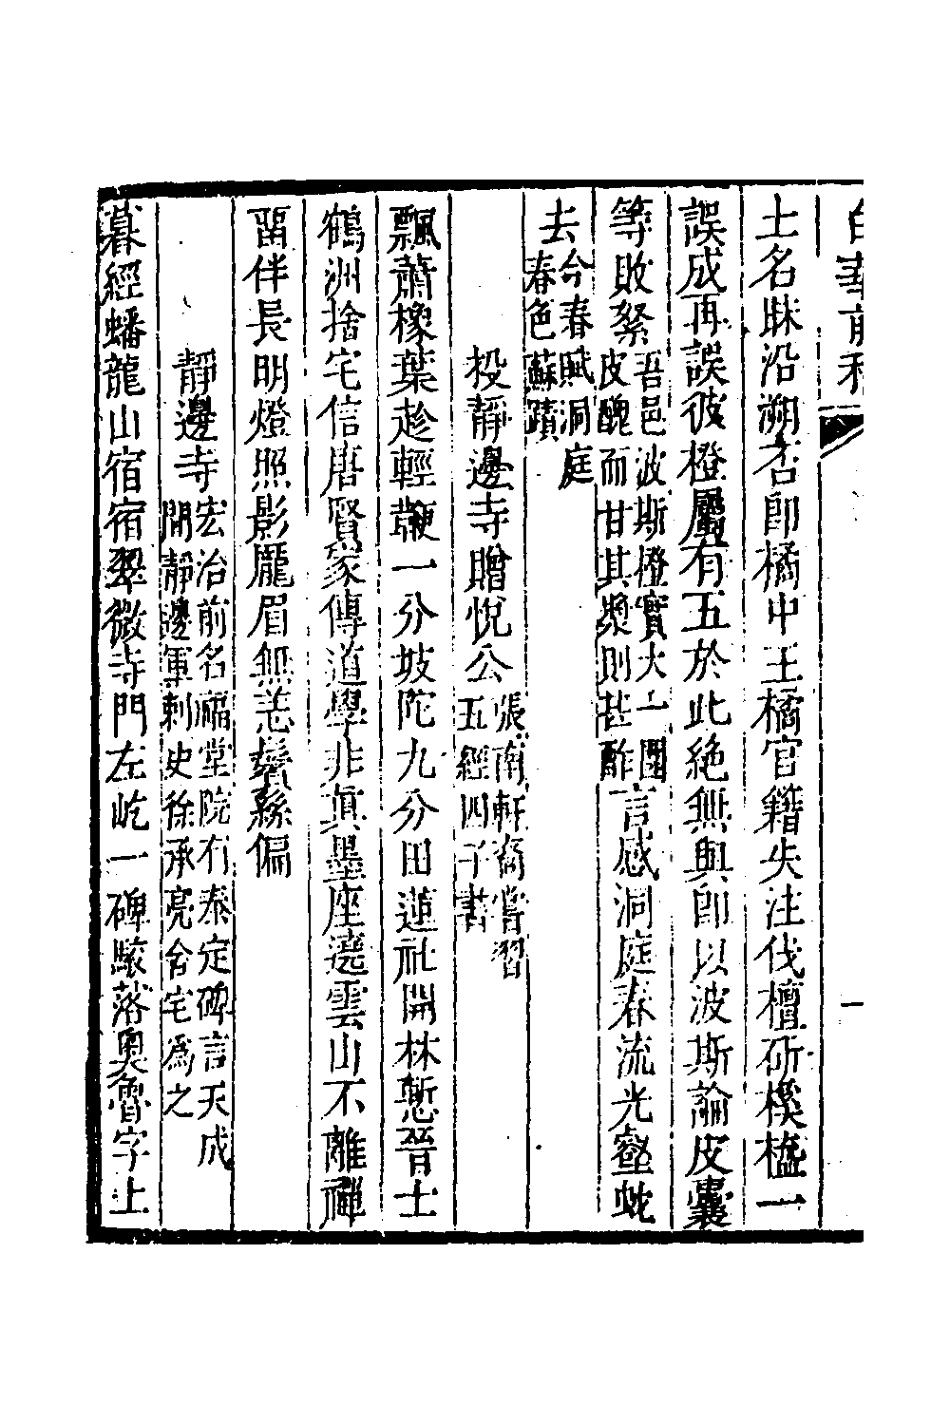 白華前稿
土名昧沿溯否卽橘中王橘官籍失注伐檀斫檏橀一
誤成再誤彼橙屬有五於此絶無與卽以波斯論皮囊
等敗絮吾邑波斯橙實大一圍皮醜而甘其漿則甚酢言感洞庭春流光壑虵
去今春賦洞庭春色蘇蹟
投靜邊寺贈悅公張南軒裔嘗習五經四子書
飄蕭橡葉趁輕鞭一分坡陀九分田蓮社開林慙晉士
鶴洲捨宅信唐賢家傳道學非眞墨座遶雲山不離禪
畱伴長明燈照影龎眉無恙鬢絲偏
靜邊寺宏治前名福堂院有泰定碑言天成閒靜邊軍刺史徐承亮舍宅爲之
暮經蟠龍山宿宿翠微寺門左屹一碑駮落奧魯字上